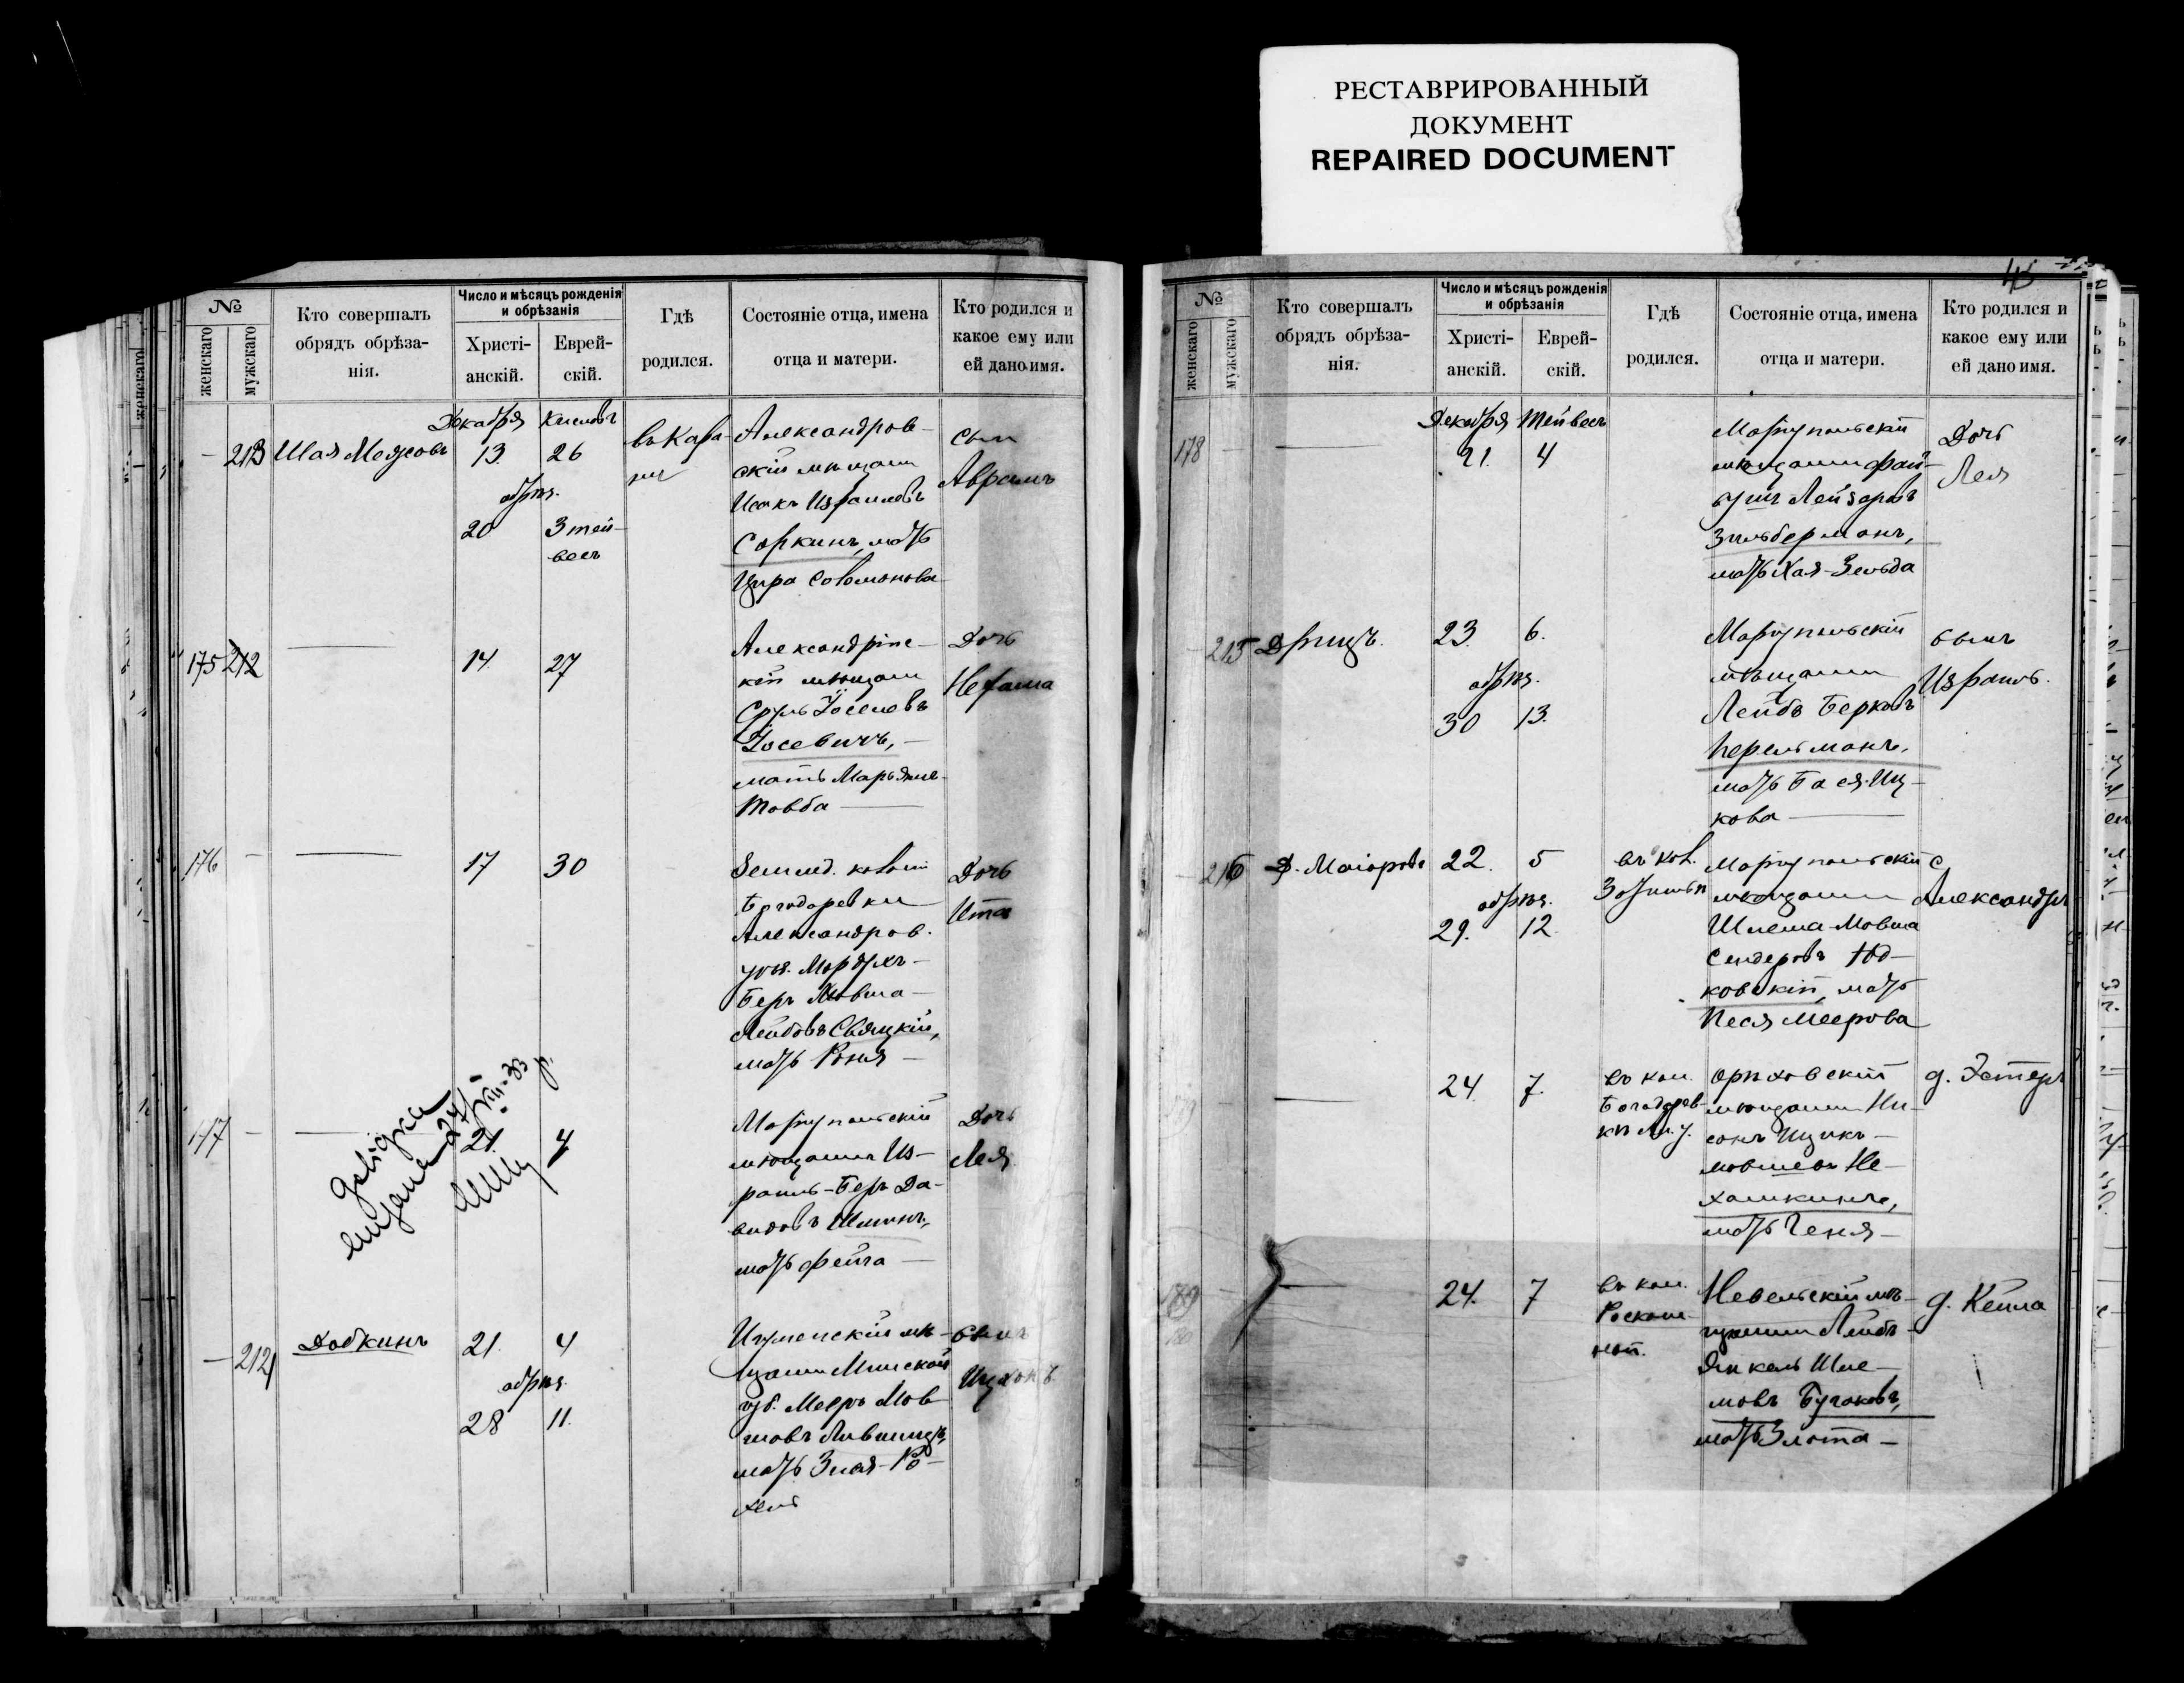 РЕСТАВРИРОВАННЫЙ
ДОКУМЕНТ
REPAIRED DOCUMENT
№
женскаго
мужскаго
Кто совершалъ
обрядъ обрѣза-
нія.
Число и мѣсяцъ рожденія
и обрѣзанія
Христі-
анскій.
Еврей-
скій.
Гдѣ
родился.
Состояніе отца, имена
отца и матери.
Кто родился и
какое ему или
ей дано имя.
Декабря
213
13.
26
обрѣз.
20
3 тей-
весъ
Александров-
скій мѣщан
Исакъ Израилевъ
Соркинъ, мать
Цира Соломонова
сын
Аврамъ
175
14.
27
мѣщан
Сруль Іоселевъ
Іосевичъ,
мать Марьяше-
Товба
Дочь
Нехама
176
17
30
Землед. колоніи
Богодаревки
Александров.
уѣз. Мордухъ-
Беръ Мовша-
Лейбовъ Свяцкій,
мать Роня
Дочь
Ита
177
21.
4
Маріупольскій
мѣщанин Из-
раиль-Беръ Да-
видовъ
мать Фейга
Дочь
Лея
27/XII-33 р.
Добкинъ
21.
4
обрѣз.
28
11.
Игуменскій мѣ-
щанин Минской
губ. Мееръ Мов-
шовъ Лившицъ,
мать Злая-Ро-
хель
сынъ
Ицхокъ
№
женскаго
мужскаго
Кто совершалъ
обрядъ обрѣза-
нія.
Число и мѣсяцъ рожденія
и обрѣзанія
Христі-
анскій.
Еврей-
скій.
Гдѣ
родился.
Состояніе отца, имена
отца и матери.
Кто родился и
какое ему или
ей дано имя.
178
Декабря
Тейвесъ
21.
4
Маріупольскій
мѣщанин Фай-
бушъ Лейзеровъ
Зильберманъ,
мать Хая-Зельда
Дочь
Лея
215
23.
6.
обрѣз.
30
13.
Маріупольскій
мѣщанин
Лейба Берковъ
Перельманъ,
мать Бася Иц-
кова
сынъ
Израиль.
216
22.
5
обрѣз.
29.
12.
Маріупольскій
мѣщанин
Шлема-Мовша
Сендеровъ Юд-
ковскій, мать
Песя Меерова
с
Александръ
24.
7.
въ кол.
Богодарев-
Орѣховскій
мѣщанин Ни-
сонъ Ицикъ-
Мовшевъ Не-
хамкинъ,
мать Геня
д. Эстеръ
24.
7
въ кол.
Невельскій мѣ-
щанин Лейба-
Янкель Шле-
мовъ
мать Злота
д. Кейла